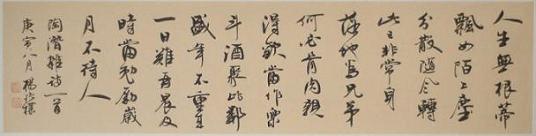 人生無根蒂
飄如陌上塵
分散隨風轉
此已非常身
落地為兄弟
何必骨肉親
得歡當作樂
斗酒聚比鄰
盛年不重來
一日難再晨及
時當勉勵歲
月不待人
陶潛雜詩一首
庚寅八月 楊